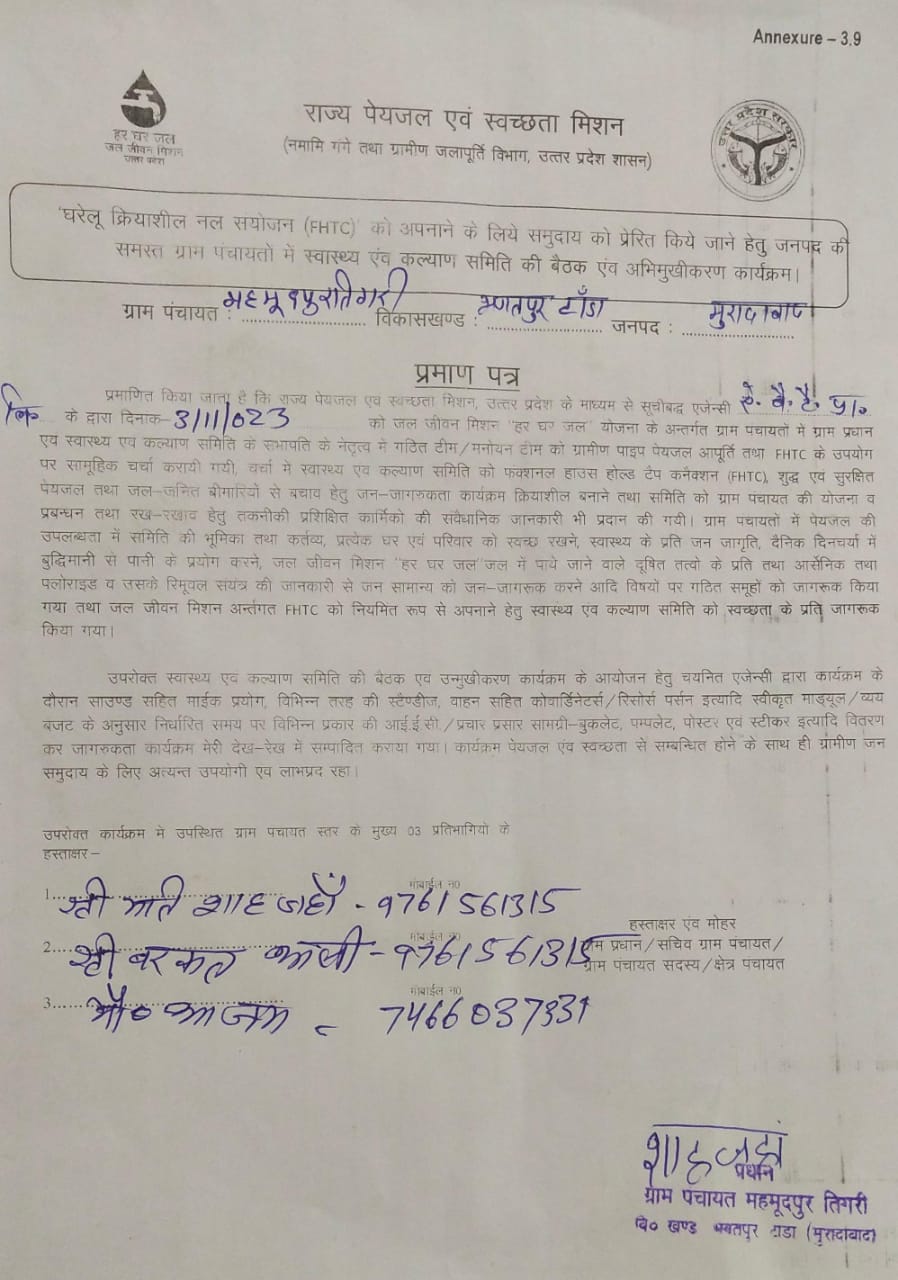 Annexure – 3.9
हर घर जल
जल जीवन मिशन
उत्तर प्रदेश
राज्य पेयजल एवं स्वच्छता मिशन
(नमामि गंगे तथा ग्रामीण जलापूर्ति विभाग, उत्तर प्रदेश शासन)
उत्तर प्रदेश सरकार
'घरेलू क्रियाशील नल सयोजन (FHTC)' को अपनाने के लिये समुदाय को प्रेरित किये जाने हेतु जनपद की
समस्त ग्राम पंचायतों में स्वास्थ्य एंव कल्याण समिति की बैठक एंव अभिमुखीकरण कार्यक्रम।
ग्राम पंचायत : महमूदपुरतिगरी विकासखण्ड : भगतपुर टाँडा जनपद : मुरादाबाद
प्रमाण पत्र
प्रमाणित किया जाता है कि राज्य पेयजल एवं स्वच्छता मिशन, उत्तर प्रदेश के माध्यम से सूचीबद्व एजेन्सी ऐ. बै. टै. प्रा०
लि० के द्वारा दिनाक–3/11/023 को जल जीवन मिशन "हर घर जल" योजना के अन्तर्गत ग्राम पंचायतों में ग्राम प्रधान
एवं स्वास्थ्य एव कल्याण समिति के सभापति के नेतृत्व में गठित टीम/मनोयन टीम को ग्रामीण पाइप पेयजल आपूर्ति तथा FHTC के उपयोग
पर सामूहिक चर्चा करायी गयी, चर्चा में स्वास्थ्य एव कल्याण समिति को फंक्शनल हाउस होल्ड टैप कनैक्शन (FHTC), शुद्व एवं सुरक्षित
पेयजल तथा जल–जनित बीमारियों से बचाव हेतु जन–जागरुकता कार्यक्रम क्रियाशील बनाने तथा समिति को ग्राम पंचायत की योजना व
प्रबन्धन तथा रख–रखाव हेतु तकनीकी प्रशिक्षित कार्मिको की संवैधानिक जानकारी भी प्रदान की गयी। ग्राम पंचायतों में पेयजल की
उपलब्धता में समिति की भूमिका तथा कर्तव्य, प्रत्येक घर एवं परिवार को स्वच्छ रखने, स्वास्थ्य के प्रति जन जागृति, दैनिक दिनचर्या में
बुद्धिमानी से पानी के प्रयोग करने, जल जीवन मिशन "हर घर जल"जल में पाये जाने वाले दूषित तत्वो के प्रति तथा आर्सेनिक तथा
फ्लोराइड व जसके रिमूवल संयत्र की जानकारी से जन सामान्य को जन–जागरूक करने आदि विषयों पर गठित समूहों को जागरूक किया
गया तथा जल जीवन मिशन अर्न्तगत FHTC को नियमित रूप से अपनाने हेतु स्वास्थ्य एंव कल्याण समिति को स्वच्छता के प्रति जागरूक
किया गया।
उपरोक्त स्वास्थ्य एव कल्याण समिति की बैठक एव उन्मुखीकरण कार्यक्रम के आयोजन हेतु चयनित एजेन्सी द्वारा कार्यक्रम के
दौरान साउण्ड सहित माईक प्रयोग, विभिन्न तरह की स्टैण्डीज, वाहन सहित कोवार्डिनेटर्स/रिसोर्स पर्सन इत्यादि स्वीकृत माड्यूल/व्यय
बजट के अनुसार निर्धारित समय पर विभिन्न प्रकार की आई.ई.सी./प्रचार प्रसार सामग्री–बुकलेट, पम्पलेट, पोस्टर एवं स्टीकर इत्यादि वितरण
कर जागरुकता कार्यक्रम मेरी देख–रेख में सम्पादित कराया गया। कार्यक्रम पेयजल एंव स्वच्छता से सम्बन्धित होने के साथ ही ग्रामीण जन
समुदाय के लिए अत्यन्त उपयोगी एव लाभप्रद रहा।
उपरोक्त कार्यक्रम मे उपस्थित ग्राम पंचायत स्तर के मुख्य 03 प्रतिभागियो के
हस्ताक्षर–
मोबाईल न0
1. श्री मति शाहजहाँ - 9761561315
हस्ताक्षर एंव मोहर
मोबाईल न0
2. श्री बरकत अली - 9761561315
ग्राम प्रधान/सचिव ग्राम पंचायत/
ग्राम पंचायत सदस्य/क्षेत्र पंचायत
मोबाईल न0
3. मौ० आजम - 7466037331
शाहजहां
प्रधान
ग्राम पंचायत महमूदपुर तिगरी
वि० खण्ड भगतपुर टाडा (मुरादाबाद)